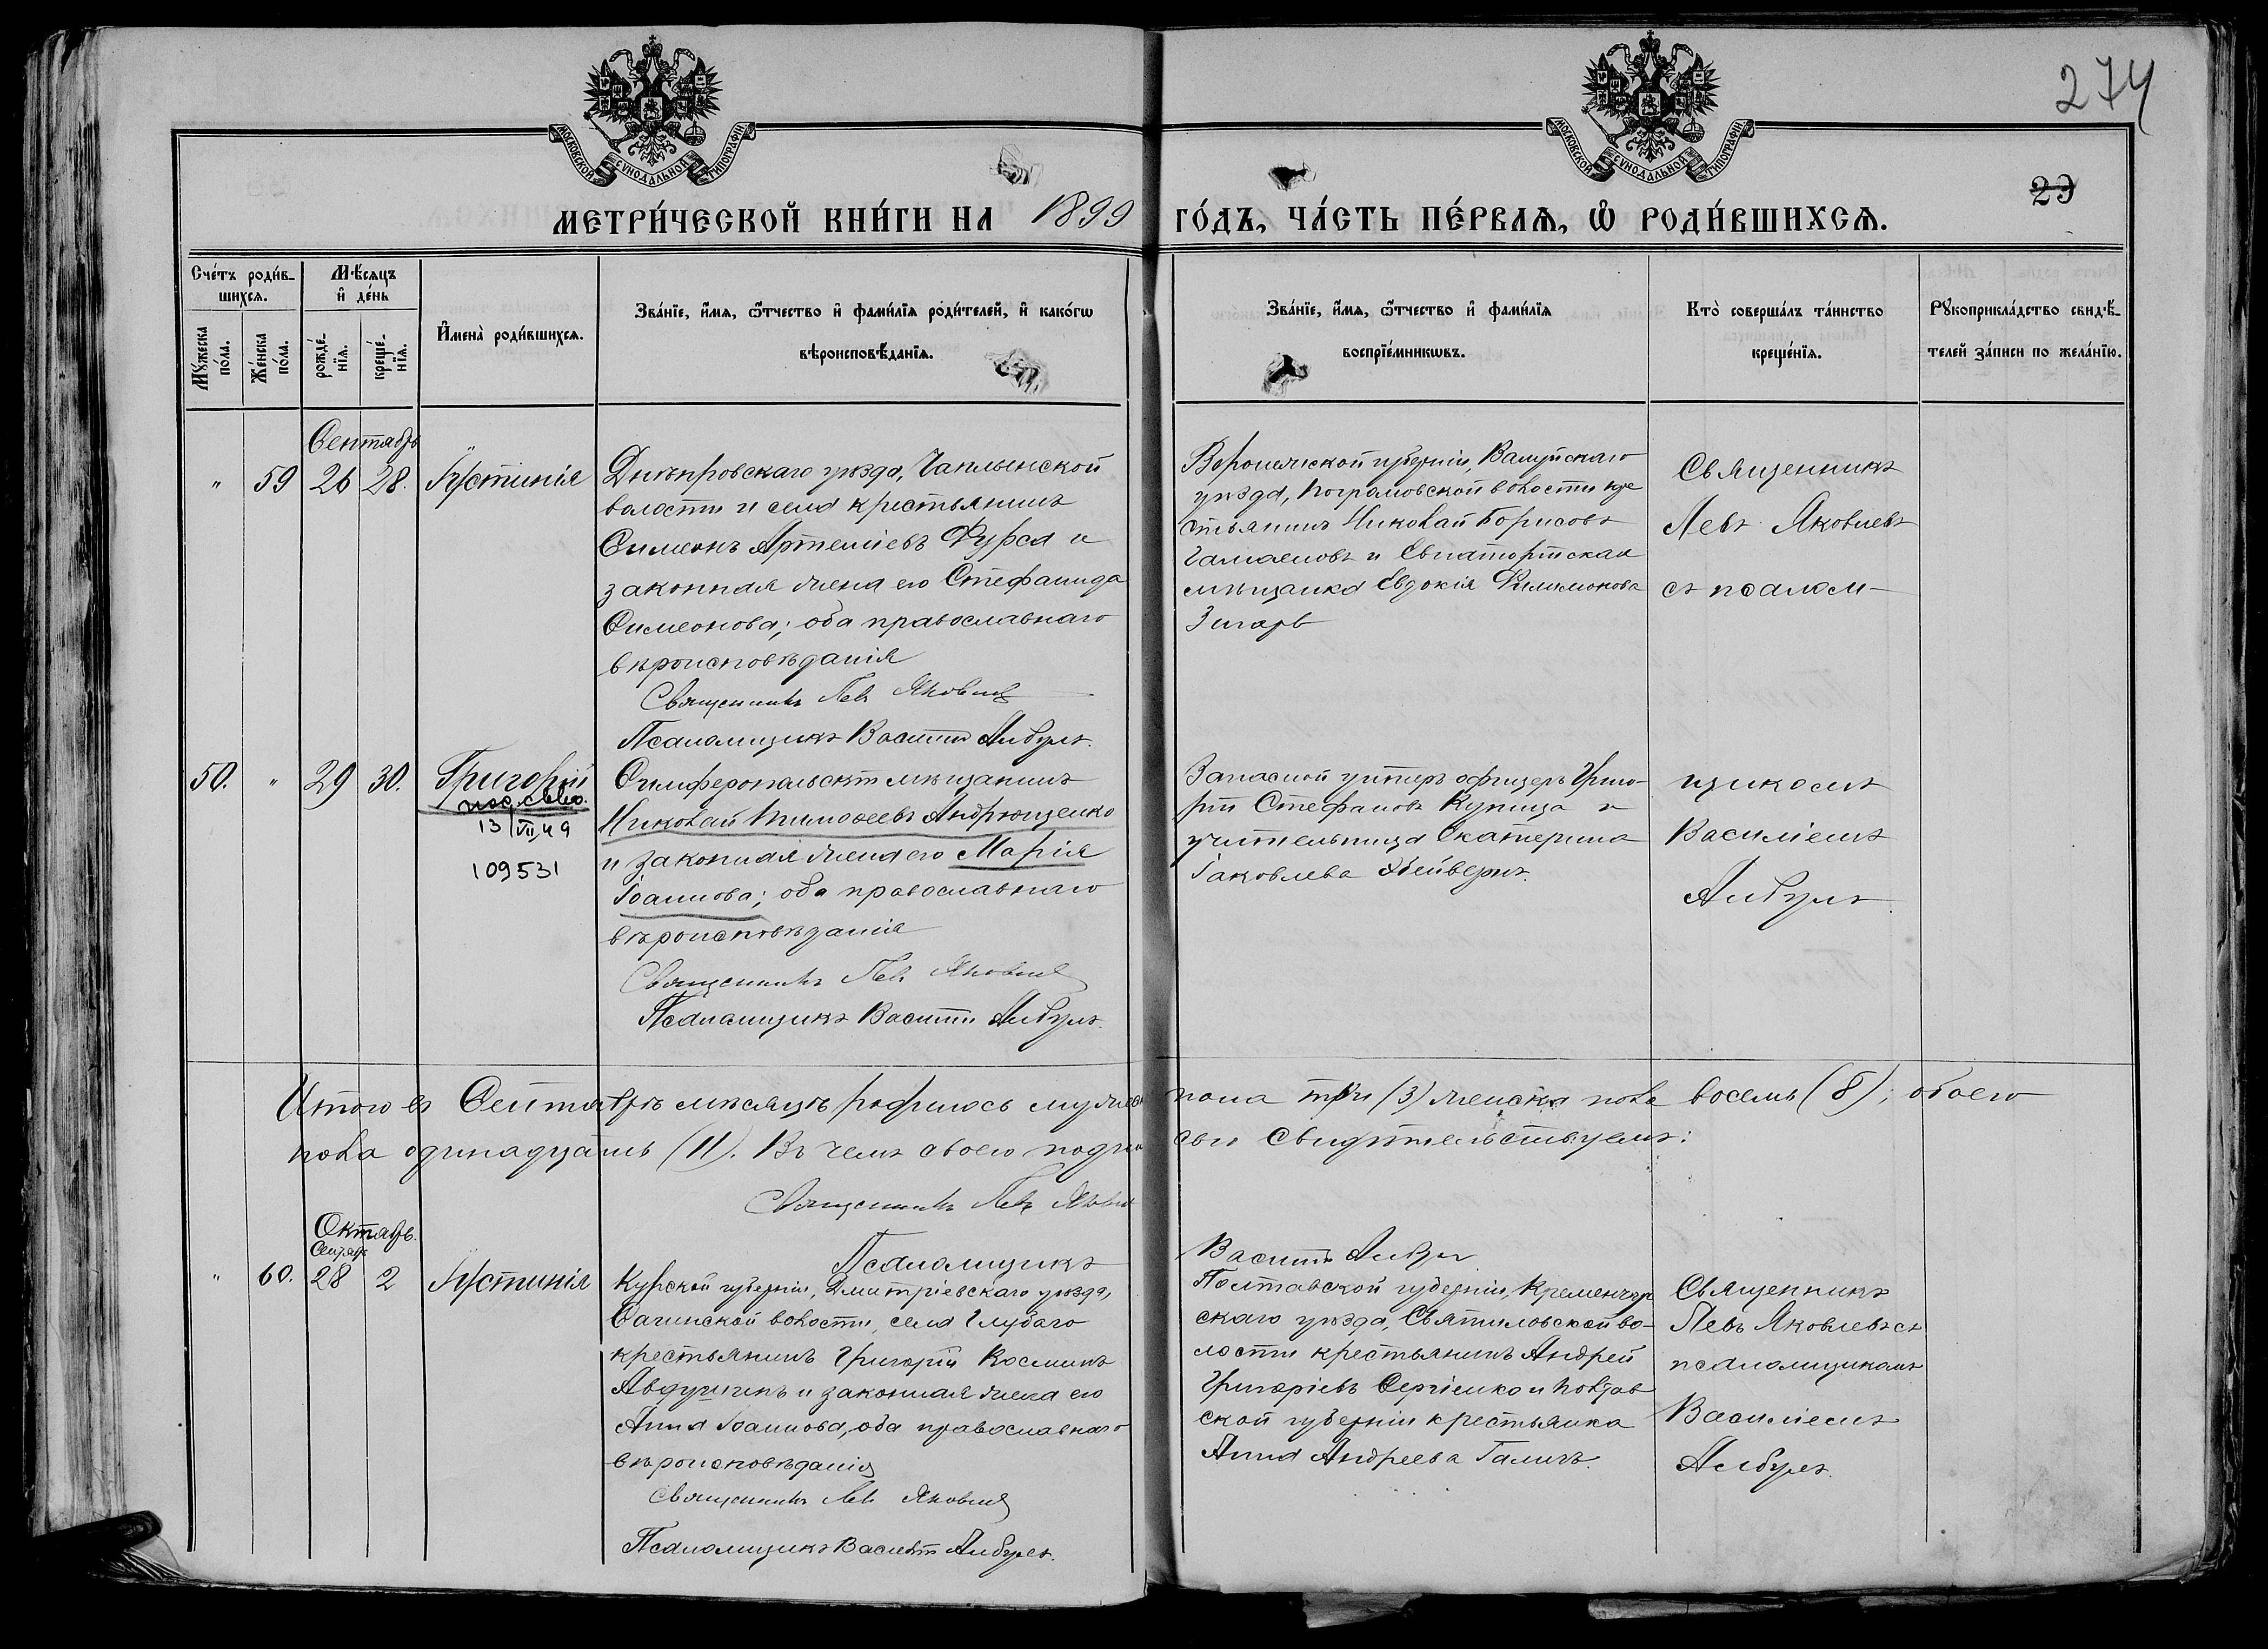 274
23
МОСКОВСКОЙ СѴНОДАЛЬНОЙ ТИПОГРАФІИ
МОСКОВСКОЙ СѴНОДАЛЬНОЙ ТИПОГРАФІИ
МЕТРИ́ЧЕСКОЙ КНИ́ГИ НА 1899 ГО́ДЪ, ЧА́СТЬ ПЕ́РВАѦ, Ѡ҆ РОДИ́ВШИХСѦ.
Сче́тъ роди́в-
шихсѧ.
Мꙋ́жеска по́ла.
Же́нска по́ла.
Мѣ́сѧцъ
и҆ де́нь
рожде́-
нїѧ.
креще́-
нїѧ.
И҆мена̀ роди́вшихсѧ.
Зва́нїе, и҆́мѧ, ѻ҆́тчество и҆ фами́лїѧ роди́телей, и҆ како́гѡ
вѣроисповѣ́данїѧ.
Зва́нїе, и҆́мѧ, ѻ҆́тчество и҆ фами́лїѧ
воспрїе́мникѡвъ.
Кто̀ соверша́лъ та́инство
креще́нїѧ.
Рꙋкоприкла́дство свидѣ́-
телей за́писи по жела́нїю.
Сентябрь
" 59 26 28. Іустинія
Днѣпровскаго уѣзда, Чаплынской
волости и села крестьянинъ
Симеонъ Артеміевъ Фурса и
законная жена его Стефанида
Симеонова; оба православнаго
вѣроисповѣданія
Священникъ Левъ Яковлевъ
Псаломщикъ Василій Албулъ.
Воронежской губерніи, Валуйскаго
уѣзда, Погромовской волости кре
стьянинъ Николай Борисовъ
и Евпаторійская
мѣщанка Евдокія Филимонова
Священникъ
Левъ Яковлевъ
съ псалом-
50. " 29 30. Григорій
13/VII 49
109531
Симферопольскій мѣщанинъ
Николай Тимоѳеевъ Андрющенко
и законная жена его Марія
Іоаннова; оба православнаго
вѣроисповѣданія
Священникъ Левъ Яковлевъ
Псаломщикъ Василій Албулъ.
Запасной унтеръ офицеръ Григо-
рій Стефановъ Куница и
учительница Екатерина
Іаковлева
щикомъ
Василіемъ
Албулъ.
Итого въ Сентябрѣ мѣсяцѣ родилось мужеска пола три (3) женска пола восемь (8); обоего
пола одинадцать (11). Въ чемъ своею подпи сью свидѣтельствуемъ:
Священникъ Левъ Яковлевъ
Псаломщикъ Василій Албулъ
Октябрь.
Сентябр
" 60. 28 2 Іустинія
Курской губерніи, Дмитріевскаго уѣзда,
волости, села Глубаго
крестьянинъ Григорій Косминъ
Авдушинъ и законная жена его
Анна Іоаннова, оба православнаго
вѣроисповѣданія
Священникъ Левъ Яковлевъ
Псаломщикъ Василій Албулъ.
Полтавской губерніи, Кременчуг
скаго уѣзда, волости крестьянинъ Андрей
Григоріевъ Сергіенко и Полтав
ской губерніи крестьянка
Анна Андреева Галичъ.
Священникъ
Левъ Яковлевъ съ
псаломщикомъ
Василіемъ
Албулъ.